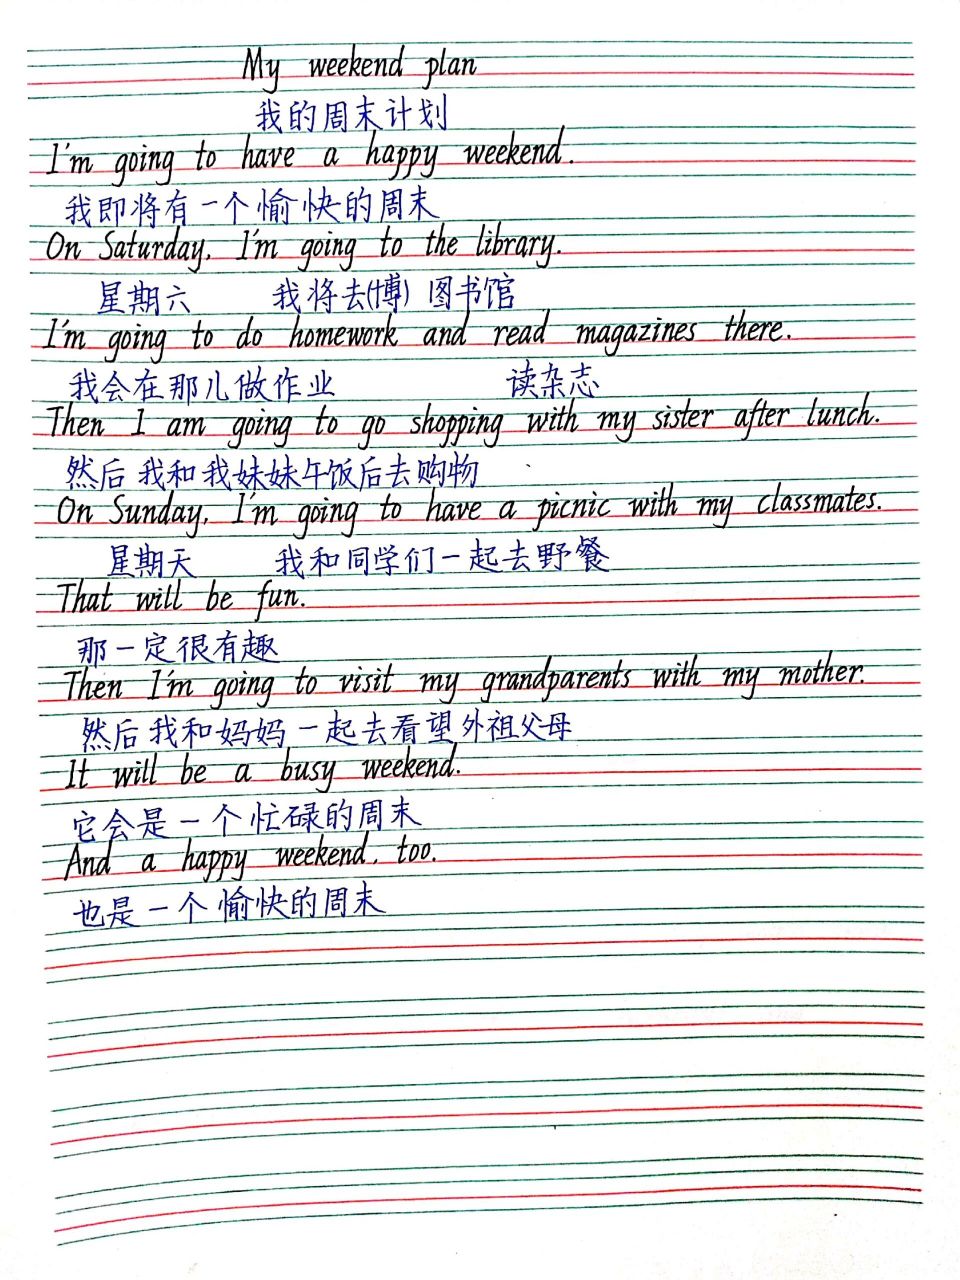 My weekend plan
我的周末计划
I'm going to have a happy weekend.
我即将有一个愉快的周末
On Saturday, I'm going to the library.
星期六 我将去(博) 图书馆
I'm going to do homework and read magazines there.
我会在那儿做作业 读杂志
Then I am going to go shopping with my sister after lunch.
然后 我和我妹妹午饭后去购物
On Sunday, I'm going to have a picnic with my classmates.
星期天 我和同学们一起去野餐
That will be fun.
那一定很有趣
Then I'm going to visit my grandparents with my mother.
然后 我和妈妈一起去看望外祖父母
It will be a busy weekend.
它会是一个忙碌的周末
And a happy weekend, too.
也是一个愉快的周末